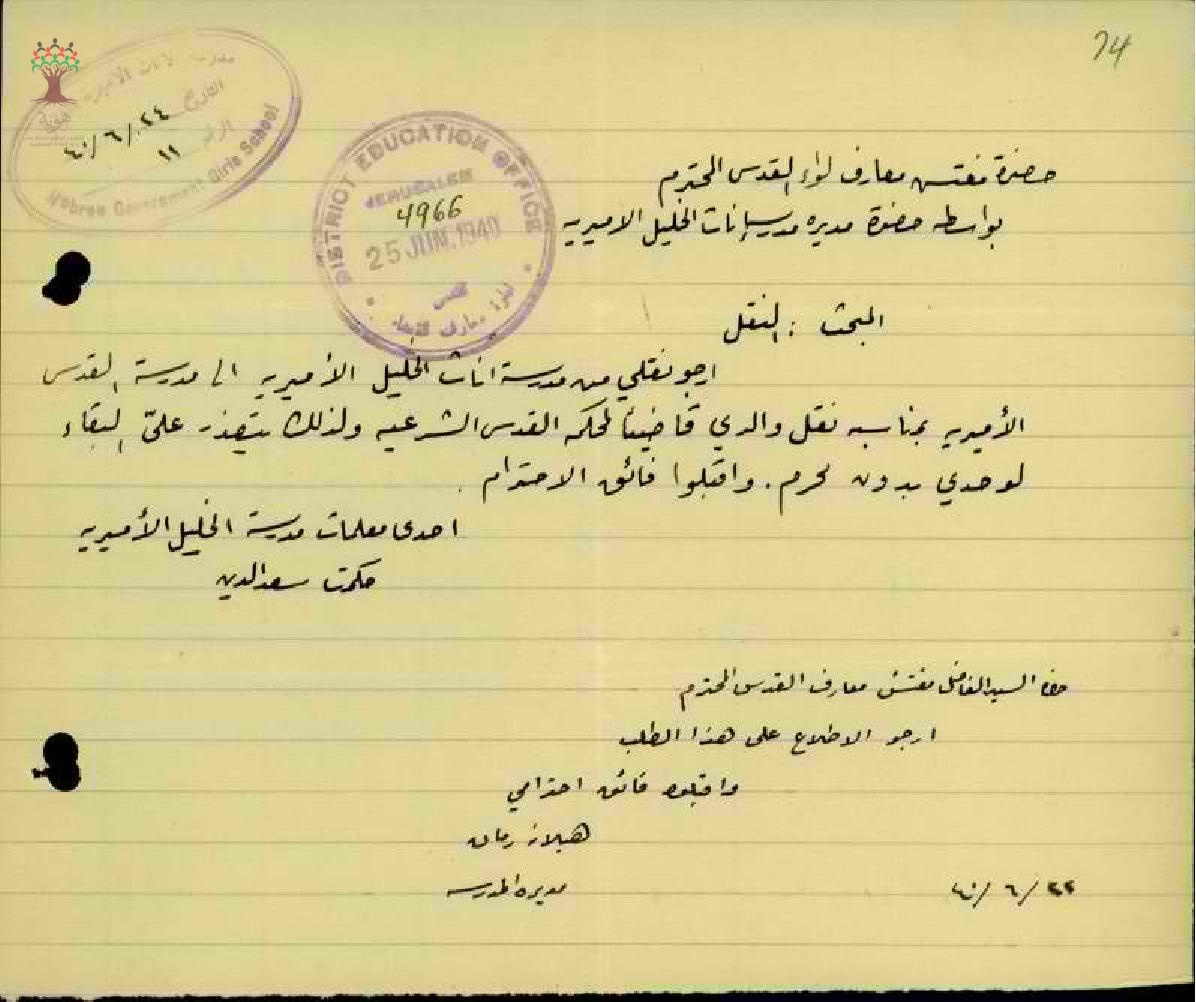 74
مدرسة الإناث الأميرية
التاريخ ٢٤/٦/٤٠
الرقم ١١
Hebron Government Girls School
DISTRICT EDUCATION OFFICE
JERUSALEM
4966
25 JUN. 1940
القدس
حضرة مفتش معارف لواء القدس المحترم
بواسطه حضرة مديره مدرسة إناث الخليل الاميريه
المبحث : النقل
ارجو نقلي من مدرسة اناث الخليل الأميريه الى مدرسة القدس
الأميريه بمناسبه نقل والدي قاضياً لمحكمه القدس الشرعيه ولذلك يتعذر عليّ البقاء
لوحدي بدون محرم. واقبلوا فائق الاحترام .
احدى معلمات مدرسة الخليل الأميريه
حكمت سعد الدين
حضرة السيد الفاضل مفتش معارف القدس المحترم
ارجو الاطلاع على هذا الطلب
واقبلوا فائق احترامي
مديرة المدرسه
٢٢/٦/٤٠